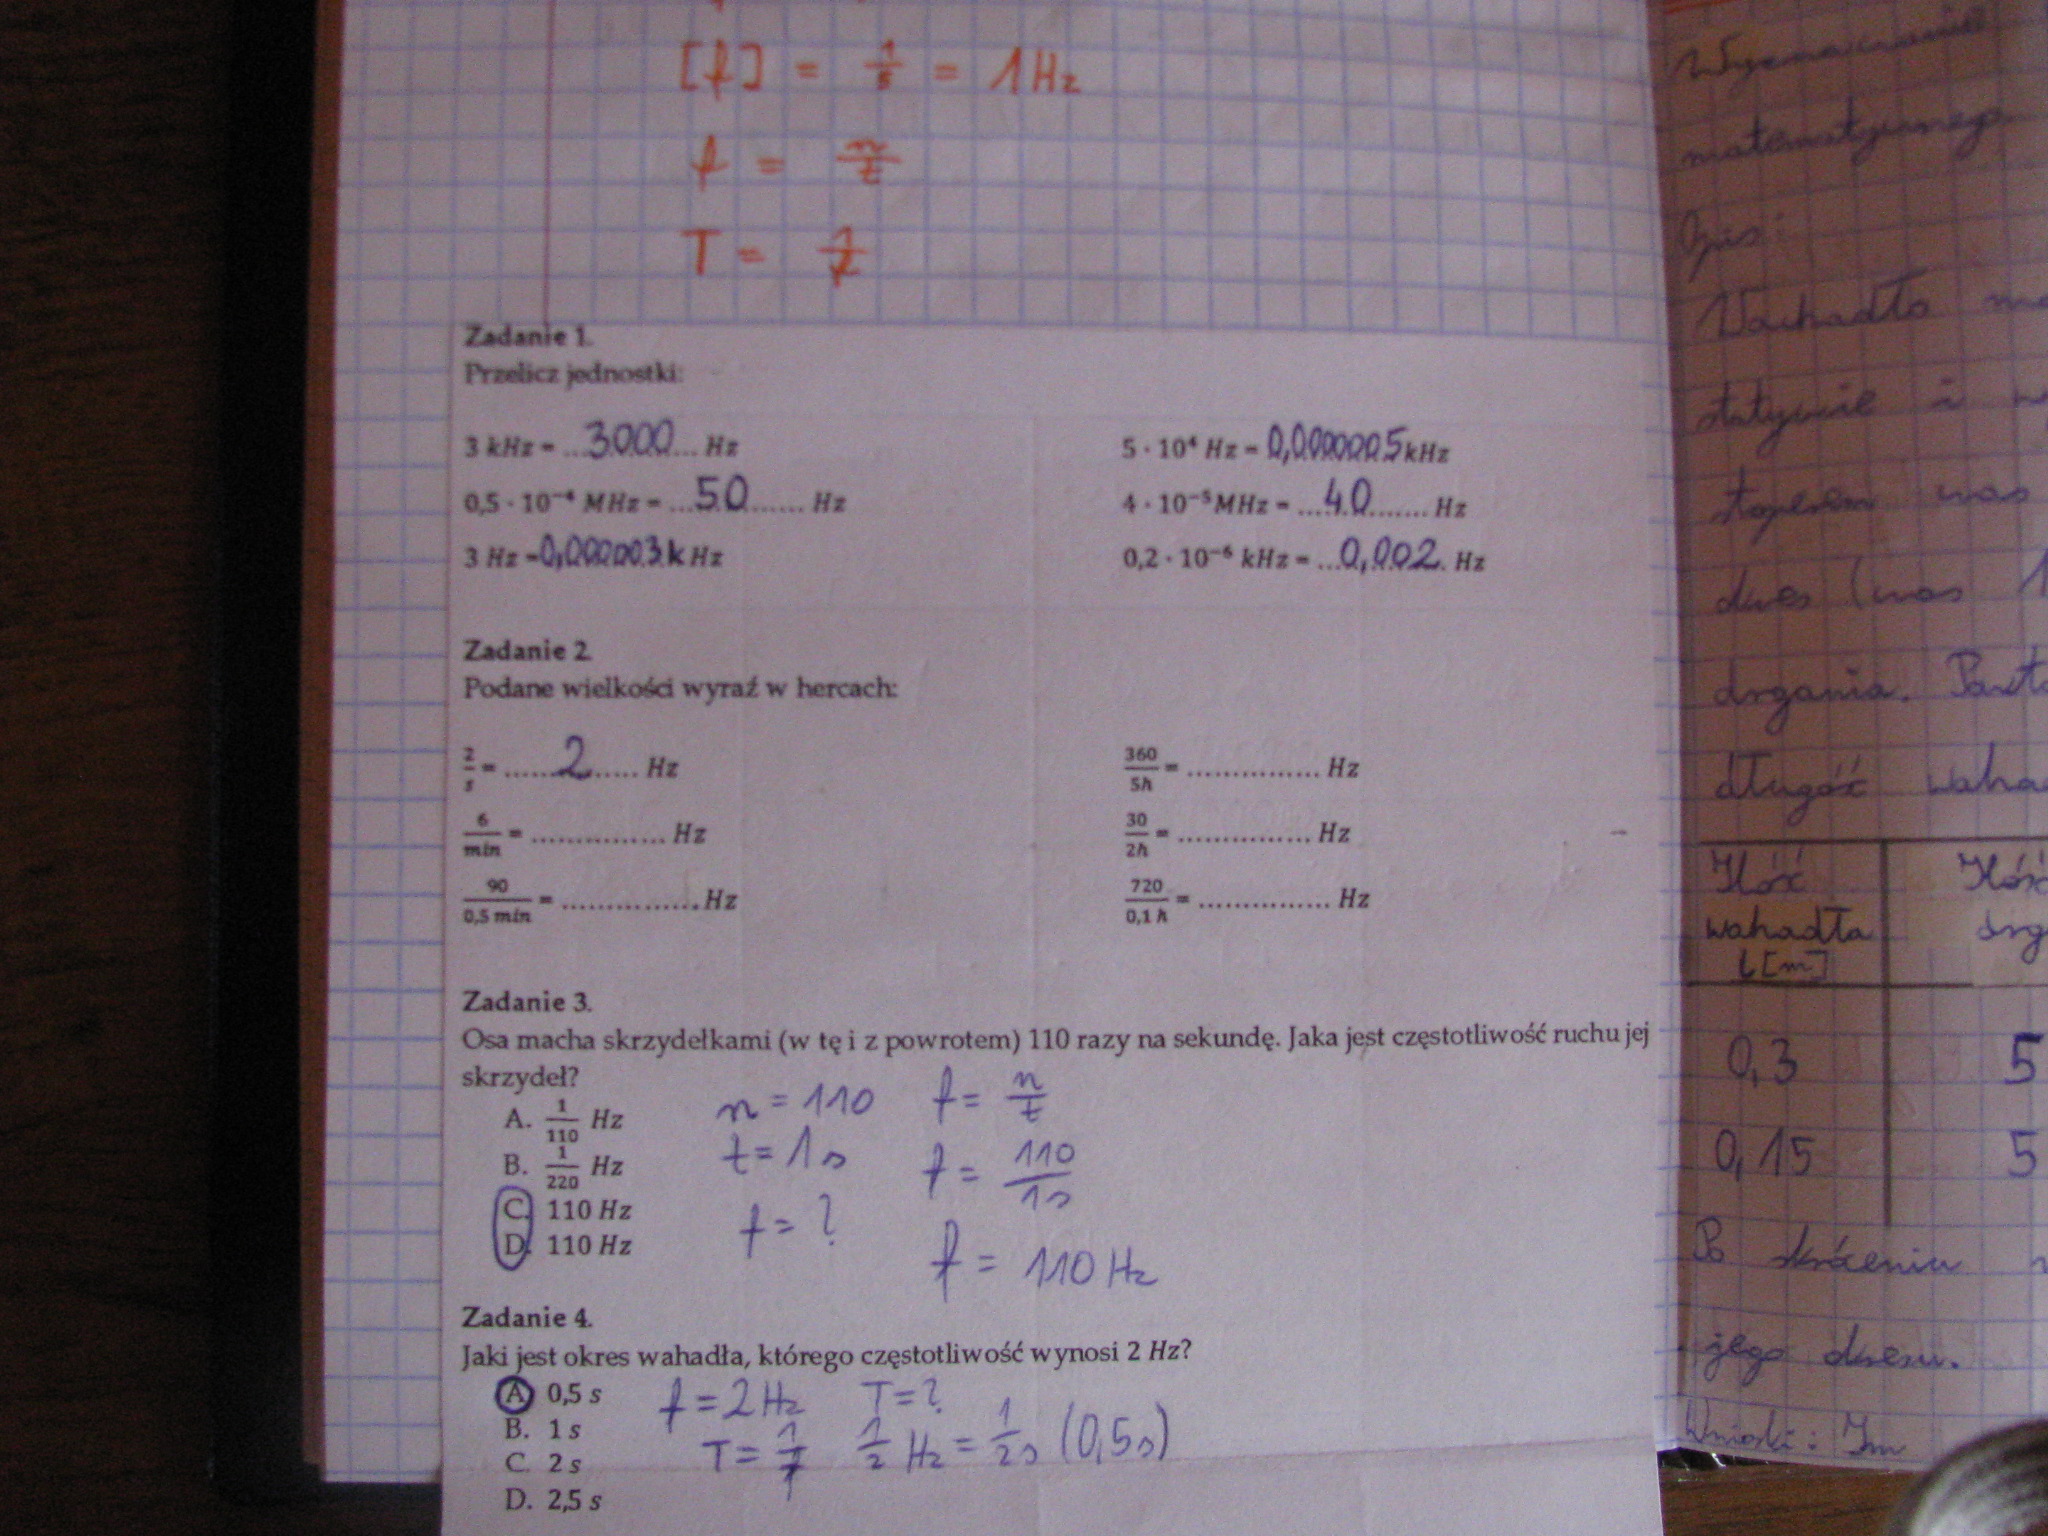 [f] = 1/s = 1Hz
f = n/t
T = 1/f
Zadanie 1.
Przelicz jednostki:
3 kHz = ...3000... Hz
0,5 · 10⁻⁴ MHz = ...50....... Hz
3 Hz = 0,000003 k Hz
5 · 10⁴ Hz = 0,0000005 kHz
4 · 10⁻⁵ MHz = ...40........ Hz
0,2 · 10⁻⁶ kHz = ...0,002.. Hz
Zadanie 2.
Podane wielkości wyraź w hercach:
2/s = ......2...... Hz
6/min = ............... Hz
90/0,5 min = ............... Hz
360/5h = ............... Hz
30/2h = ............... Hz
720/0,1 h = ............... Hz
Zadanie 3.
Osa macha skrzydełkami (w tę i z powrotem) 110 razy na sekundę. Jaka jest częstotliwość ruchu jej
skrzydeł?
A. 1/110 Hz
B. 1/220 Hz
C. 110 Hz
D. 110 Hz
n = 110
t = 1s
f = ?
f = n/t
f = 110/1s
f = 110 Hz
Zadanie 4.
Jaki jest okres wahadła, którego częstotliwość wynosi 2 Hz?
A. 0,5 s
B. 1 s
C. 2 s
D. 2,5 s
f = 2 Hz T = ?
T = 1/f 1/2 Hz = 1/2s (0,5s)
matematycznego.
Opis:
Wachadło
statywie i
stoperem czas
okres (czas 1
drgania.
długość
Ilość
wahadła
l [m]
Ilość
drg
0,3 5
0,15 5
Po skróceniu
jego okresu.
Wnioski: Im